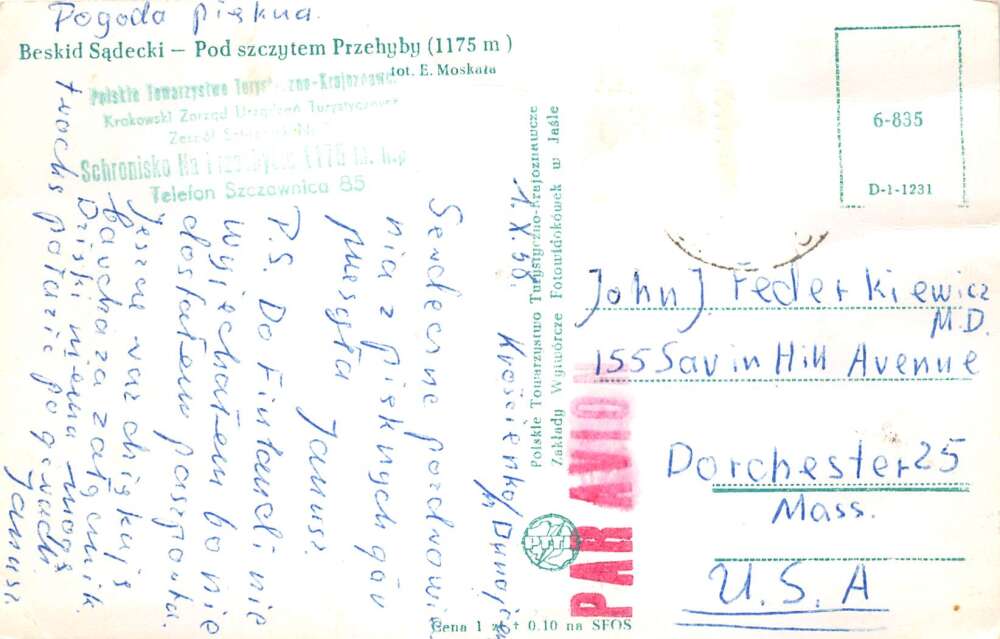 Pogoda piękna.
Beskid Sądecki — Pod szczytem Przehyby (1175 m)
fot. E. Moskała
Polskie Towarzystwo Turystyczno-Krajoznawcze
Krakowski Zarząd Urządzeń Turystycznych
Schronisko Na Przehybie 1175 m.
Telefon Szczawnica 85
1.X.58.
Krościenko/Dunajcem
Serdeczne pozdrowie
nia z pięknych gór
przesyła
Janusz
P.S. Do Finlandii nie
wyjechałem bo nie
dostałem paszportu.
Jeszcze raz dziękuję
bardzo za załącznik.
Dzięki niemu mogę
trochę połazić po górach
Janusz.
Polskie Towarzystwo Turystyczno-Krajoznawcze
Zakłady Wytwórcze Fotowidokówek w Jaśle
PTTK
Cena 1 zł + 0.10 na SFOS
PAR AVION
6-835
D-1-1231
John J Federkiewicz
M.D.
155 Savin Hill Avenue
Dorchester 25
Mass.
U.S.A